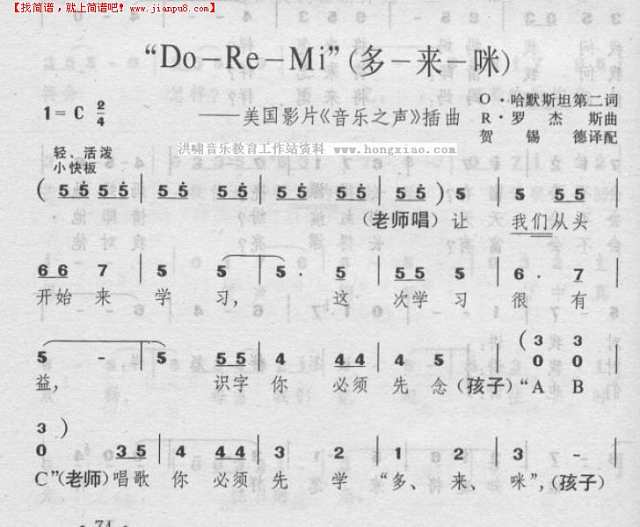 【找简谱，就上简谱吧! www.jianpu8.com】
“Do－Re－Mi”(多－来－咪)
1=C 2/4
——美国影片《音乐之声》插曲
O·哈默斯坦第二词
R·罗杰斯曲
贺锡德译配
洪啸音乐教育工作站资料 www.hongxiao.com
轻、活泼
小快板
( 5 5 5 5 | 5 5 5 | 5 5 5 5 | 5 5 5 ) 5 | 5 5 5
(老师唱) 让 我们从头
6 6 7 | 5 5 | 5 · | 5 5 | 5 5 5 | 6 · 7
开始来 学习， 这 次学习 很有
5 - | 5 5 5 4 | 4 4 4 | (3 3
0 0
益， 识字你 必须先念 (孩子) “A B
3 )
0 3 5 | 4 4 4 | 5 3 | 1 2 | 3 - |
C” (老师) 唱歌 你必须先学 “多、来、咪”，(孩子)
· 74 ·